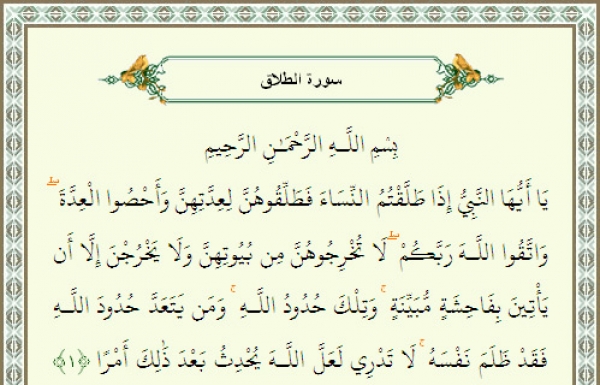 سورة الطلاق
بِسْمِ اللَّـهِ الرَّحْمَـٰنِ الرَّحِيمِ
يَا أَيُّهَا النَّبِيُّ إِذَا طَلَّقْتُمُ النِّسَاءَ فَطَلِّقُوهُنَّ لِعِدَّتِهِنَّ وَأَحْصُوا الْعِدَّةَ ۖ
وَاتَّقُوا اللَّـهَ رَبَّكُمْ ۖ لَا تُخْرِجُوهُنَّ مِن بُيُوتِهِنَّ وَلَا يَخْرُجْنَ إِلَّا أَن
يَأْتِينَ بِفَاحِشَةٍ مُّبَيِّنَةٍ ۚ وَتِلْكَ حُدُودُ اللَّـهِ ۚ وَمَن يَتَعَدَّ حُدُودَ اللَّـهِ
فَقَدْ ظَلَمَ نَفْسَهُ ۚ لَا تَدْرِي لَعَلَّ اللَّـهَ يُحْدِثُ بَعْدَ ذَٰلِكَ أَمْرًا ﴿١﴾